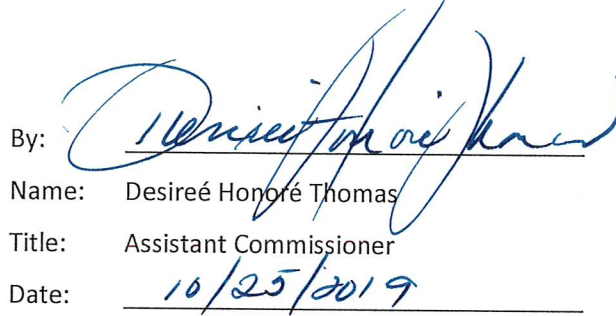 By: Desireé Honoré Thomas
Name: Desireé Honoré Thomas
Title: Assistant Commissioner
Date: 10/25/2019